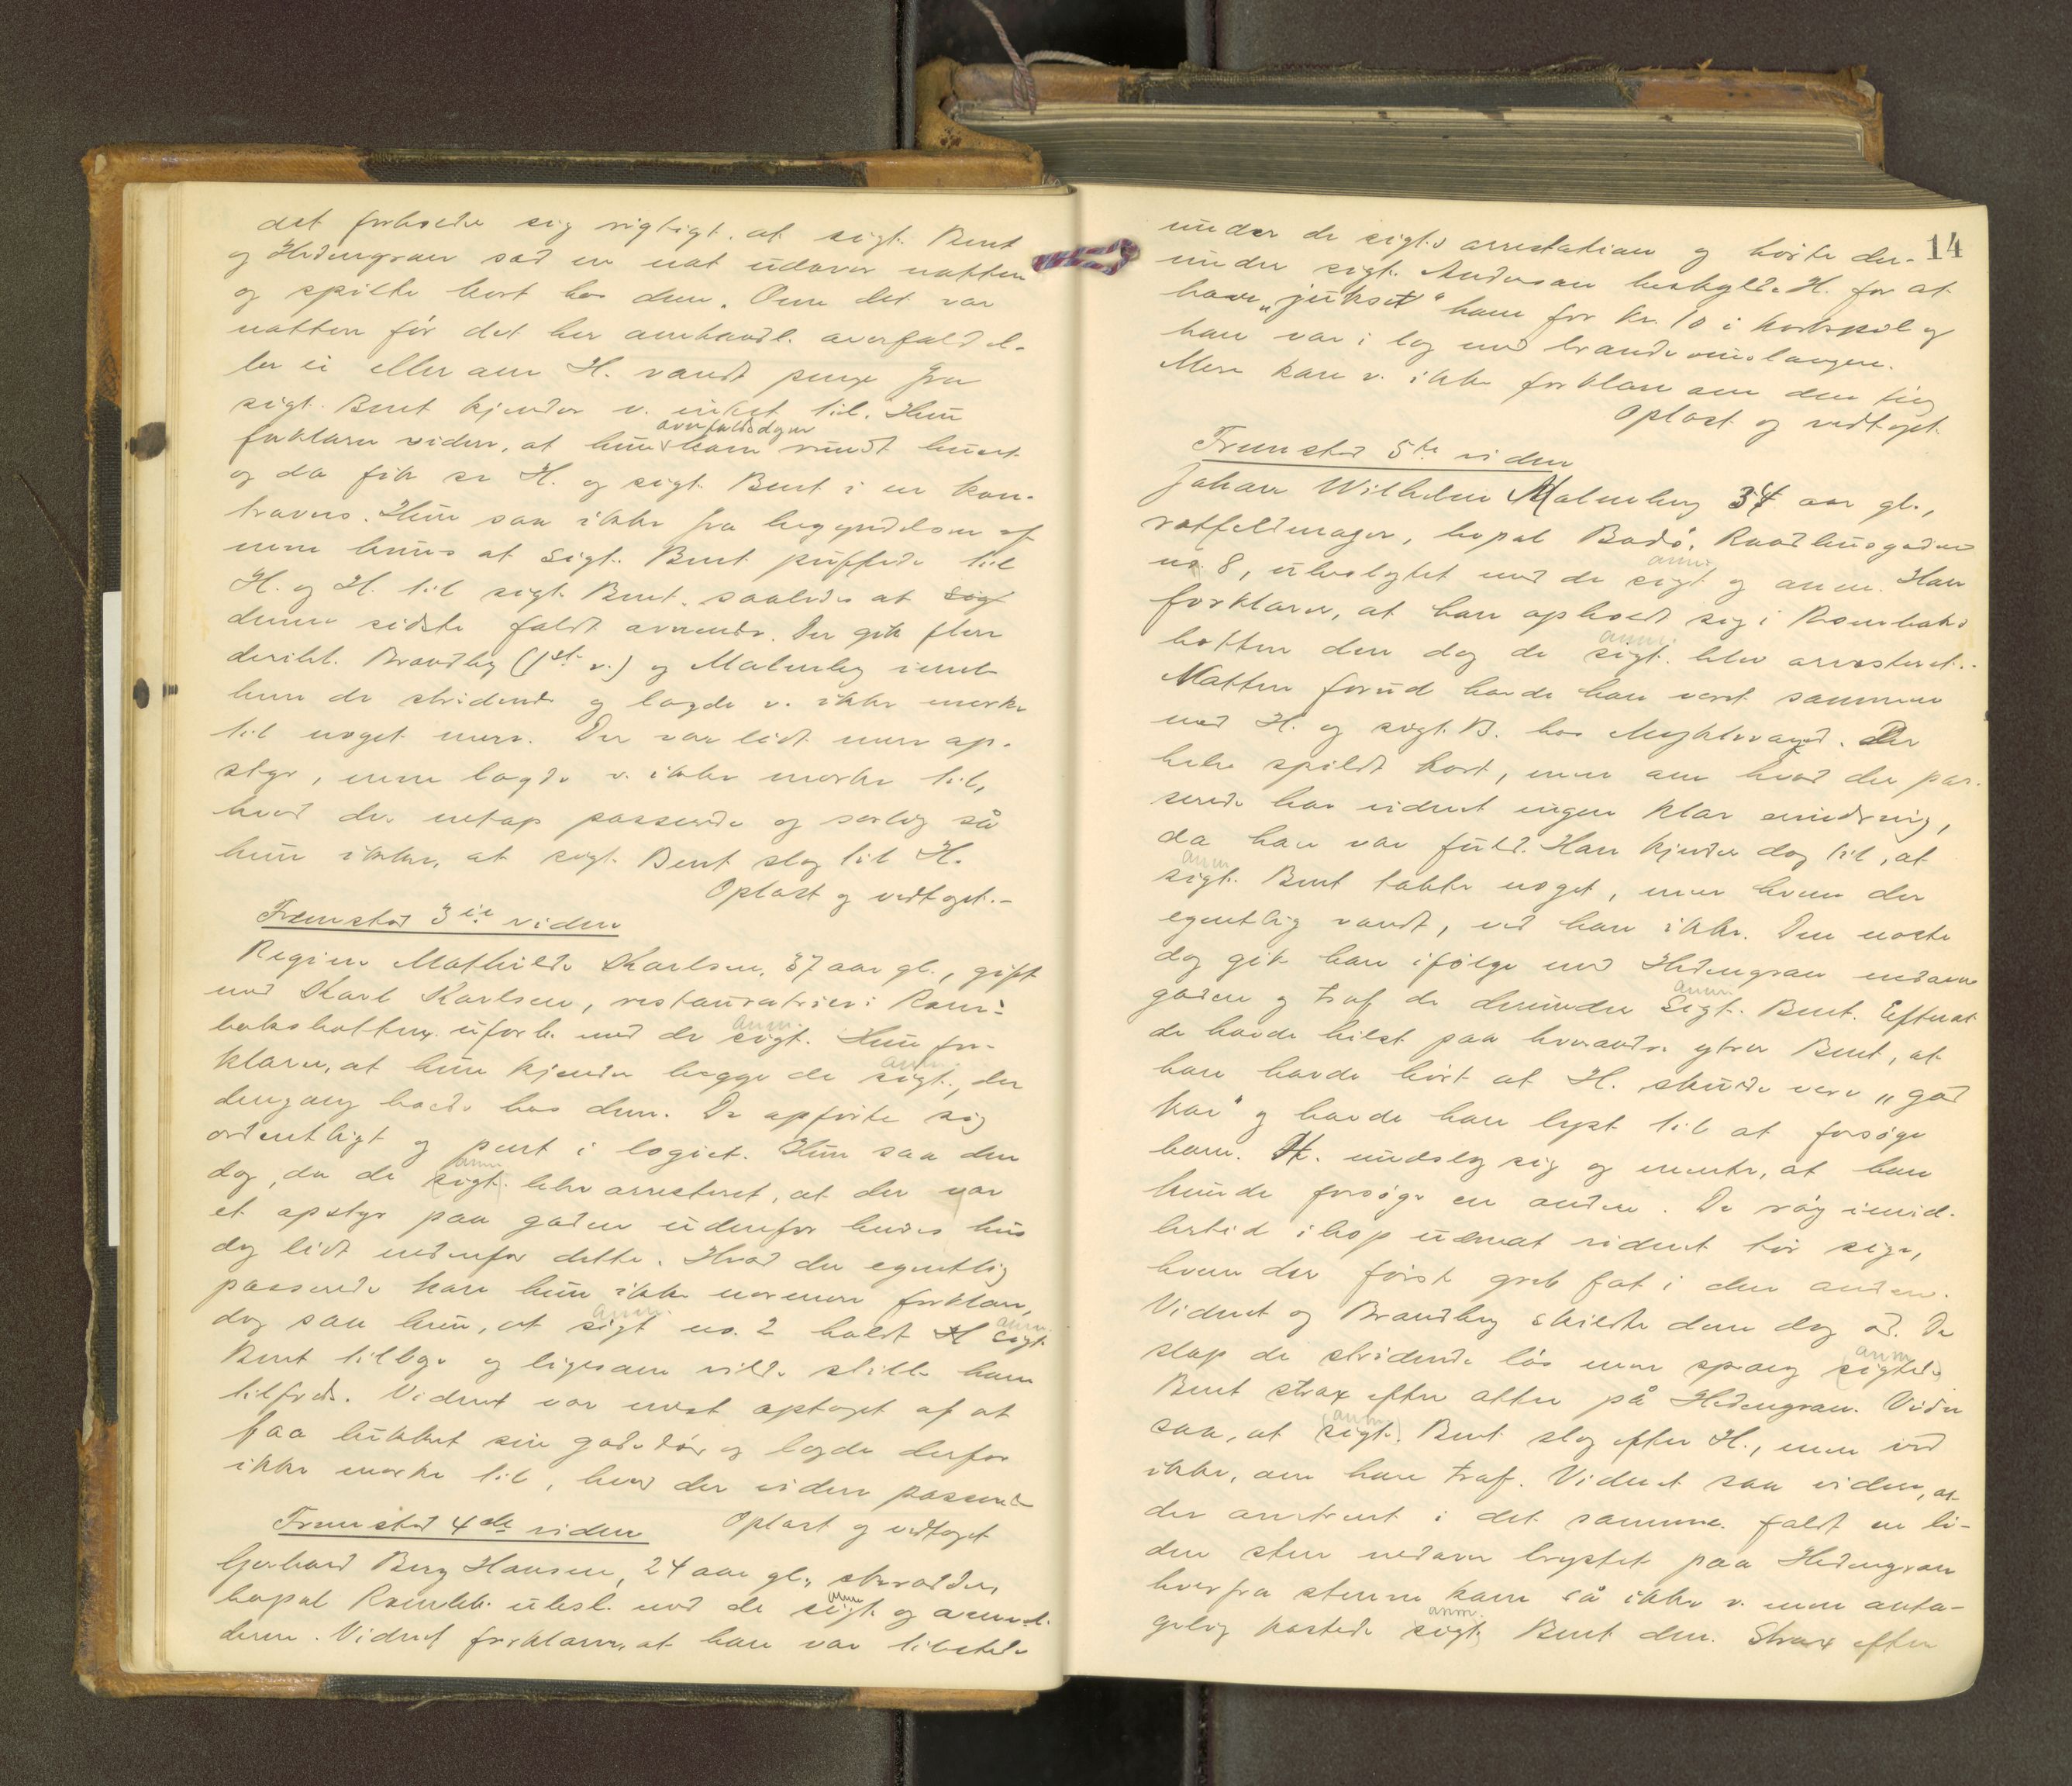 det forholder sig rigtigt. at sigt. Bent
og Hedengran sad en nat udover natten
og spilte kort hos dem. Om det var
natten før det her omhandl. overfald el-
ler ei eller om H. vandt penge fra
sigt. Bent kjender v. intet til. Hun
forklarer videre, at hun overfaldsdagen kom rundt huset
og da fik se H. og sigt. Bent i en kon-
travers. Hun saa ikke fra begyndelsen af
men hun saa at sigt. Bent puffede til
H. og H. til sigt. Bent, saaledes at sig
denne sidste faldt overende. Der gik flere
derihl. Brandbg (1ste v.) og Malmberg imel-
lem de stridende og lagde v. ikke merke
til noget mere. Der var lidt mere op-
styr, men lagde v. ikke merke til,
hvad der netop passerede og særlig så
hun ikke, at sigt. Bent slog til H.
Oplæst og vedtaget.-
Fremstod 3die vidne
Regine Mathilde Karlsen, 37 aar gl., gift
med Karl Karlsen, restauratrice i Rom-
bakbotten. uforb. med de sigt. anm. Hun for-
klarer, at hun kjender begge de sigt. anm., der
dengang boede hos dem. De opførte sig
ordentligt og pent i logiet. Hun saa den
dag, da de sigt. anm. blev arresteret, at der var
et opstyr paa gaden udenfor hendes hus
dog lidt nedenfor dette. Hvad der egentlig
passerede kan hun ikke nærmere forklare,
dog saa hun, at sigt anm. no. 2 holdt H sigt. anm.
Bent tilbage og ligesom vilde stille ham
tilfreds. Vidnet var mest optaget af at
faa lukket sin gadedør og lagde derfor
ikke merke til, hvad der videre passerede
Oplæst og vedtaget
Fremstod 4de vidne
Gerhard Berg Hansen, 24 aar gl., skrædder,
bopæl Rombb. ubesl. med de sigt. anm. og anmel-
deren. Vidnet forklarer, at han var tilstede
14
under de sigt.s arrestation og hørte der-
under sigt. Andersen beskylde H. for at
have „jukset“ ham for kr. 10 i kortspil og
han var i lag med brændevinslangere.
Mere kan v. ikke forklare om den ting
Oplæst og vedtaget.
Fremstod 5te vidne
Johan Wilhelm Malmberg 34 aar gl.,
bopæl Bodø, Raadhusgaden
no. 8, ubeslegtet med de sigt anm. og anm. Han
forklarer, at han opholdt sig i Rombaks
botten den dag de sigt. anm. blev arresteret.
Natten forud havde han været sammen
med H. og sigt. B. hos Myklevand. Der
blev spildt kort, men om hvad der pas-
serede har vidnet ingen klar erindring,
da han var fuld. Han kjender dog til, at
sigt. anm. Bent tabte noget, men hvem der
egentlig vandt, ved han ikke. Den næste
dag gik han ifølge med Hedengran nedover
gaden og traf de derunder sigt. anm. Bent. Efterat
de havde hilst paa hverandre ytrer Bent, at
han havde hørt at H. skulde være „god
kar“ og havde han lyst til at forsøge
ham. H. undslog sig og mente, at han
kunde forsøge en anden. De røg imid-
lertid ihop uden at vidnet tør sige,
hvem der først greb fat i den anden.
Vidnet og Brandberg skildte dem dog ad. De
slap de stridende løs men sprang sigtede anm.
Bent strax efter atter på Hedengran. Vidnet
saa, at sigt. (anm.) Bent slog efter H., men ved
ikke, om han traf. Vidnet saa videre, at
der omtrent i det samme faldt en li-
den sten nedover brystet paa Hedengran
hvorfra stenen kom så ikke v. men anta-
gelig kastede sigt. anm. Bent den. Strax efter